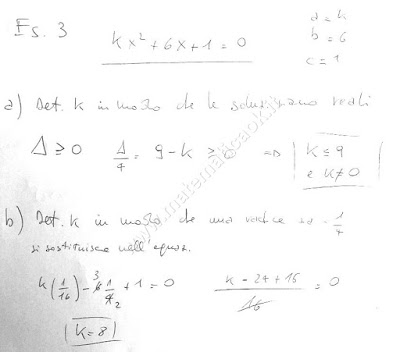 Es. 3
kx² + 6x + 1 = 0
a = k
b = 6
c = 1
a) Det. k in modo che le soluz. siano reali
Δ ≥ 0 Δ/4 = 9 - k ≥ 0 ⇒ k ≤ 9
e k ≠ 0
b) Det. k in modo che una radice sia - 1/4
si sostituisce nell'equaz.
k(1/16) - 6 3 1/4 2 + 1 = 0 k - 24 + 16 / 16 = 0
k = 8
www.matematicaok.it